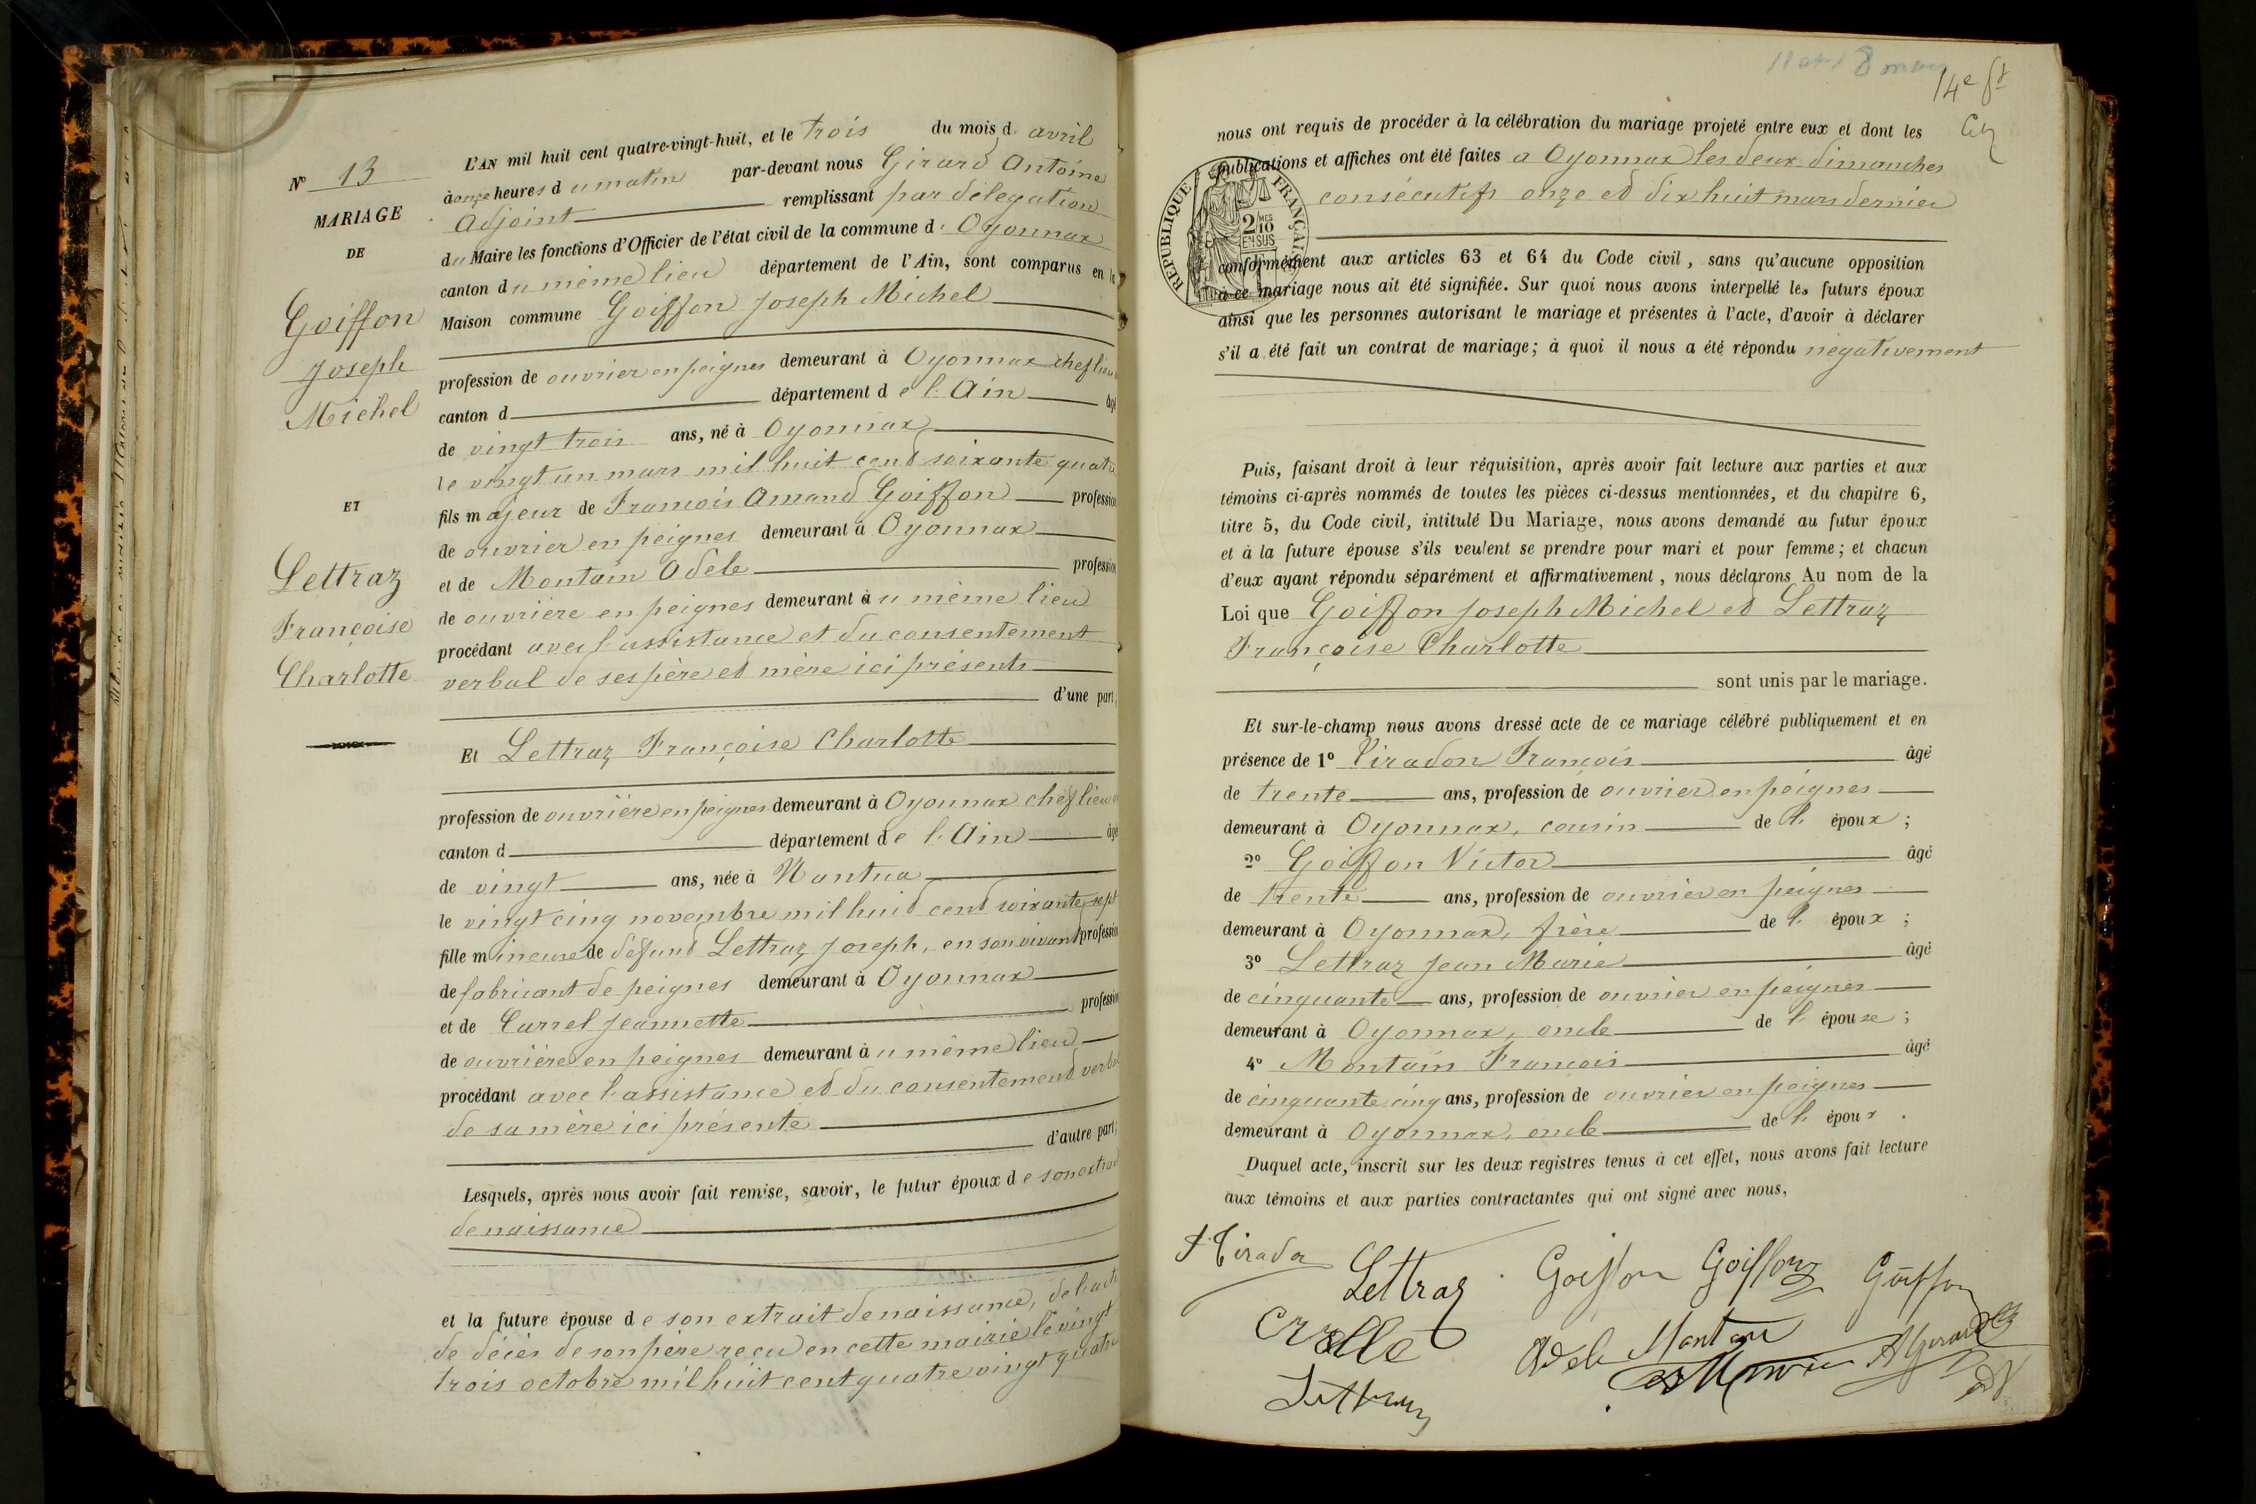 N° 13
MARIAGE
DE
Goiffon
Joseph
Michel
ET
Lettraz
Françoise
Charlotte
L'AN mil huit cent quatre-vingt-huit, et le trois du mois d' avril
à onze heures du matin par-devant nous Girard Antoine
Adjoint remplissant par délégation
du Maire les fonctions d'Officier de l'état civil de la commune d' Oyonnax
canton du même lieu département de l'Ain, sont comparus en la
Maison commune Goiffon Joseph Michel
profession de ouvrier en peignes demeurant à Oyonnax chef lieu
canton d département de l'Ain âgé
de vingt trois ans, né à Oyonnax
le vingt un mars mil huit cent soixante quatre
fils majeur de François Amand Goiffon profession
de ouvrier en peignes demeurant à Oyonnax
et de Montain Adèle profession
de ouvrière en peignes demeurant au même lieu
procédant avec l'assistance et du consentement
verbal de ses père et mère ici présents
d'une part;
Et Lettraz Françoise Charlotte
profession de ouvrière en peignes demeurant à Oyonnax chef lieu
canton d département de l'Ain âgé
de vingt ans, née à Nantua
le vingt cinq novembre mil huit cent soixante sept
fille mineure de défunt Lettraz Joseph, en son vivant profession
de fabricant de peignes demeurant à Oyonnax
et de Carrel Jeannette profession
de ouvrière en peignes demeurant au même lieu
procédant avec l'assistance et du consentement verbal
de sa mère ici présente
d'autre part;
Lesquels, après nous avoir fait remise, savoir, le futur époux de son extrait
de naissance
et la future épouse de son extrait de naissance, de l'acte
de décès de son père reçu en cette mairie le vingt
trois octobre mil huit cent quatre vingt quatre
14e ft
nous ont requis de procéder à la célébration du mariage projeté entre eux et dont les
publications et affiches ont été faites a Oyonnax les deux dimanches
consécutifs onze et dix huit mars dernier
RÉPUBLIQUE FRANÇAISE
2 MES
10
EN SUS
conformément aux articles 63 et 64 du Code civil, sans qu'aucune opposition
à ce mariage nous ait été signifiée. Sur quoi nous avons interpellé les futurs époux
ainsi que les personnes autorisant le mariage et présentes à l'acte, d'avoir à déclarer
s'il a été fait un contrat de mariage; à quoi il nous a été répondu négativement
Puis, faisant droit à leur réquisition, après avoir fait lecture aux parties et aux
témoins ci-après nommés de toutes les pièces ci-dessus mentionnées, et du chapitre 6,
titre 5, du Code civil, intitulé Du Mariage, nous avons demandé au futur époux
et à la future épouse s'ils veulent se prendre pour mari et pour femme; et chacun
d'eux ayant répondu séparément et affirmativement, nous déclarons Au nom de la
Loi que Goiffon Joseph Michel et Lettraz
Françoise Charlotte
sont unis par le mariage.
Et sur-le-champ nous avons dressé acte de ce mariage célébré publiquement et en
présence de 1° Viradon François âgé
de trente ans, profession de ouvrier en peignes
demeurant à Oyonnax, cousin de l' époux;
2° Goiffon Victor âgé
de trente ans, profession de ouvrier en peignes
demeurant à Oyonnax, frère de l' époux;
3° Lettraz Jean Marie âgé
de cinquante ans, profession de ouvrier en peignes
demeurant à Oyonnax, oncle de l' épouse;
4° Montain François âgé
de cinquante cinq ans, profession de ouvrier en peignes
demeurant à Oyonnax, oncle de l' époux.
Duquel acte, inscrit sur les deux registres tenus à cet effet, nous avons fait lecture
aux témoins et aux parties contractantes qui ont signé avec nous,
Lettraz Goiffon Goiffon Goiffon
Adele Montain AGirard